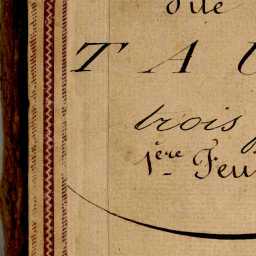 dite
TAU
trois
1ère Feu